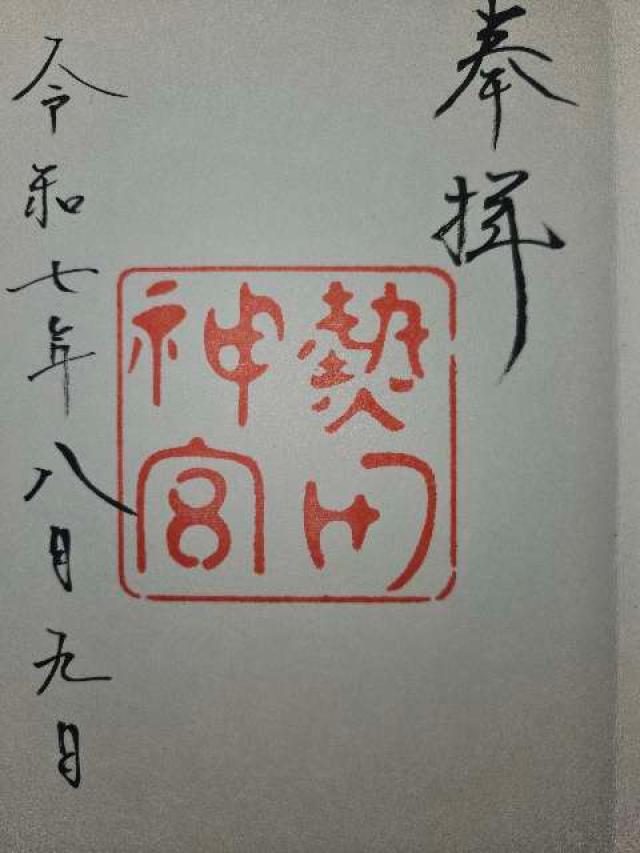 奉拝
熱田
神宮
令和七年八月九日